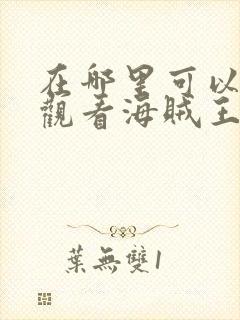 在哪里可以
觀看海賊王
葉無雙1